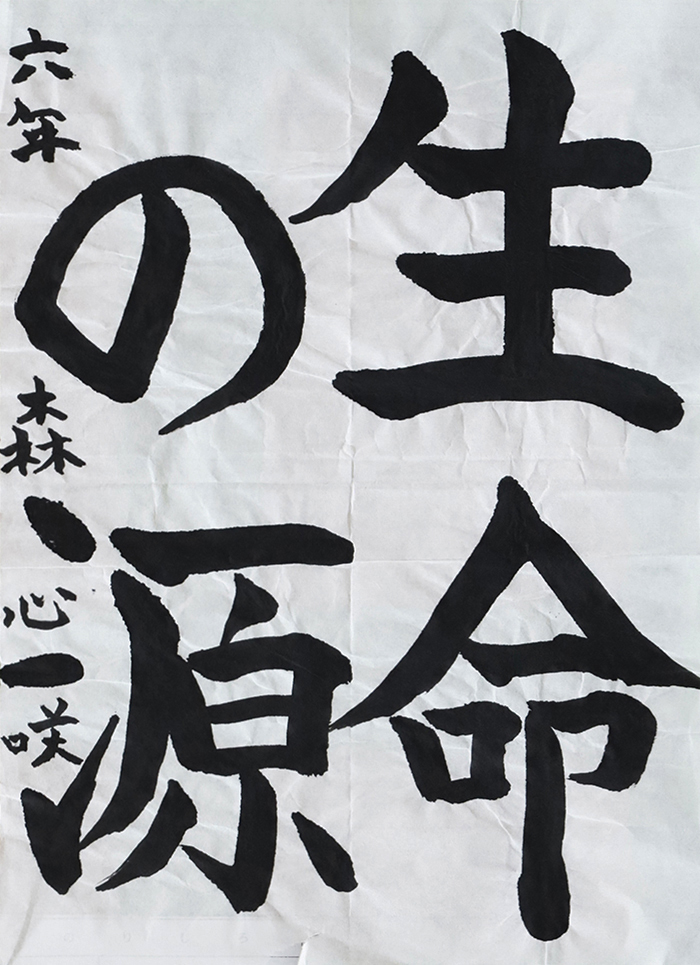 生命
の源
六年 森 心咲